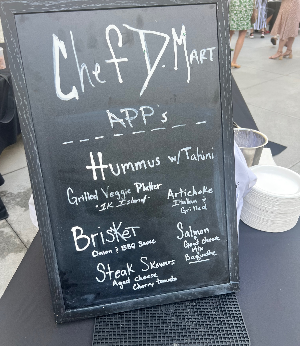 Chef D. Mart
APP's
Hummus w/ Tahini
Grilled Veggie Platter
Artichoke
Italian &
Grilled
Brisket
Onion & BBQ Sauce
Salmon
Goat cheese
Mix
Baguette
Steak Skewers
Aged cheese
Cherry tomato